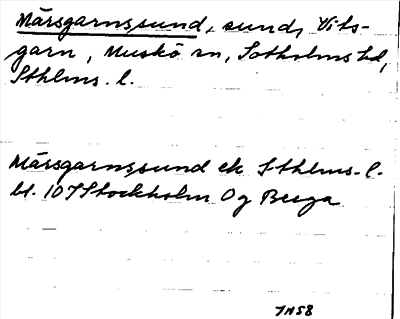 Mårsgarnssund, sund, Vits-
garn, Muskö sn, Sotholms hd,
Sthlms. l.
Mårsgarnssund ek Sthlms. l.
bl. 107 Stockholm Og Berga
JM58